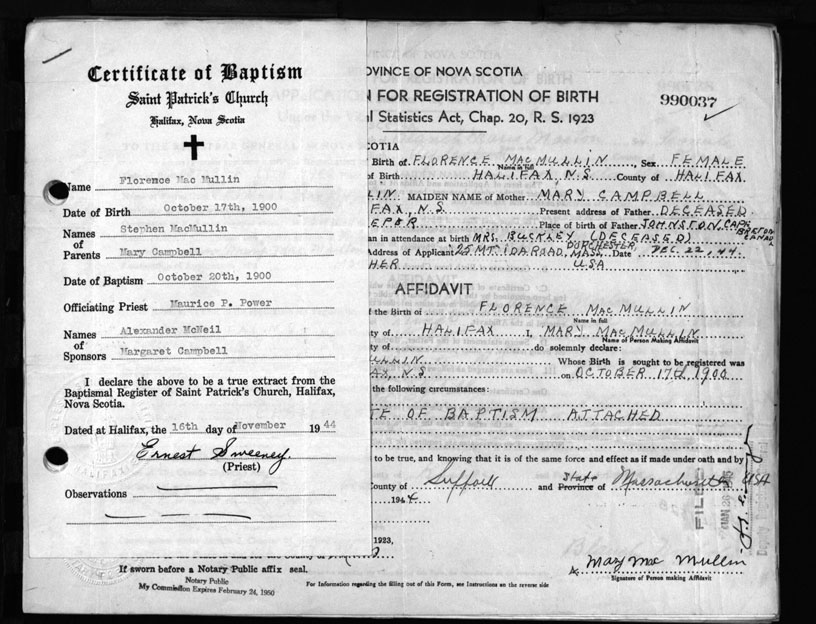 Certificate of Baptism
Saint Patrick's Church
Halifax, Nova Scotia
Name Florence Mac Mullin
Date of Birth October 17th, 1900
Names Stephen MacMullin
of
Parents Mary Campbell
Date of Baptism October 20th, 1900
Officiating Priest Maurice P. Power
Names Alexander McNeil
of
Sponsors Margaret Campbell
I declare the above to be a true extract from the
Baptismal Register of Saint Patrick's Church, Halifax,
Nova Scotia.
Dated at Halifax, the 16th day of November 1944
Ernest Sweeney
(Priest)
Observations
OVINCE OF NOVA SCOTIA
N FOR REGISTRATION OF BIRTH
990037
l Statistics Act, Chap. 20, R. S. 1923
COTIA
Birth of FLORENCE MACMULLIN Sex FEMALE
Name in full
of Birth HALIFAX, N.S. County of HALIFAX
LIN MAIDEN NAME of Mother MARY CAMPBELL
FAX, N.S. Present address of Father DECEASED
Place of birth of Father JOHNSTON, CAPE BRETON
an in attendance at birth MRS. BUCKLEY (DECEASED)
Address of Applicant 25 MT. IDA ROAD, DORCHESTER, MASS. Date DEC. 22, 44.
HER USA
AFFIDAVIT
f the Birth of FLORENCE MACMULLIN
Name in full
ty of HALIFAX I, MARY MACMULLIN
Name of Person Making Affidavit
ty of do solemnly declare:
ULLIN Whose Birth is sought to be registered was
AX, N.S. on OCTOBER 17th 1900
the following circumstances:
TE OF BAPTISM ATTACHED
to be true, and knowing that it is of the same force and effect as if made under oath and by
County of Suffolk and State Province of Massachusetts USA
1944
FILED
1923,
If sworn before a Notary Public affix seal.
Notary Public
My Commission Expires February 24, 1950
For Information regarding the filling out of this Form, see Instructions on the reverse side
Mary Mac Mullin
Signature of Person making Affidavit